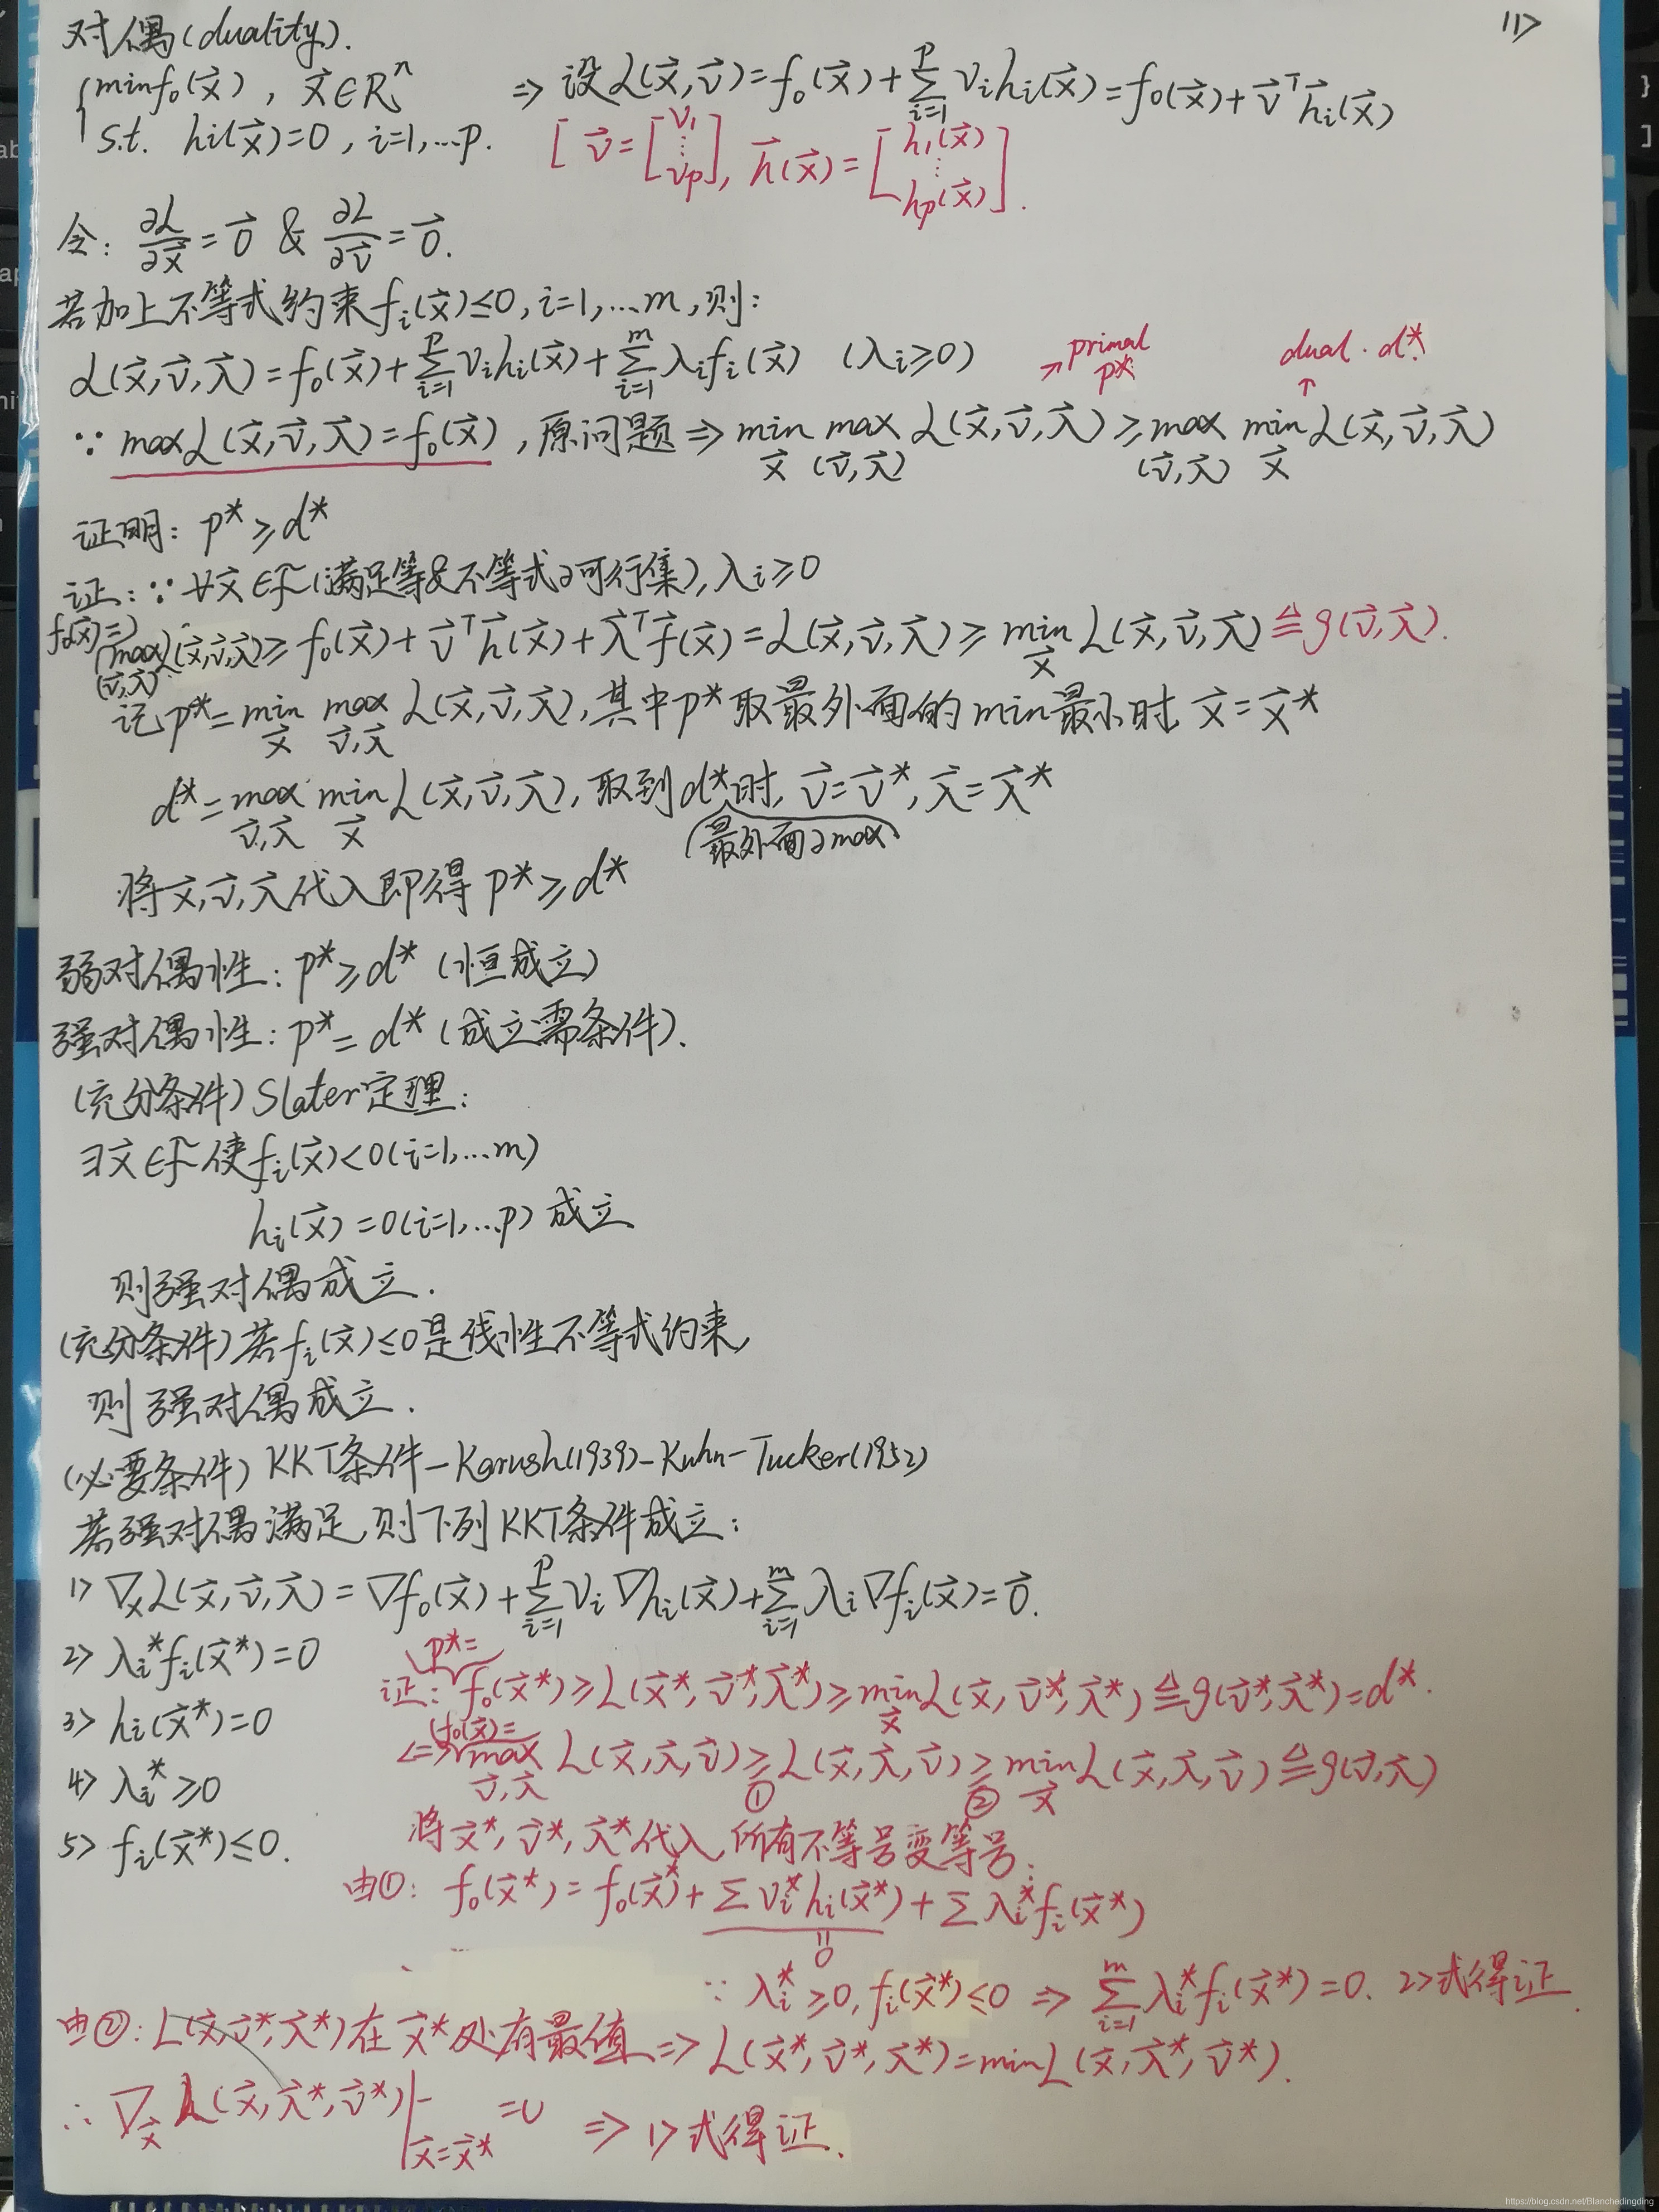 11>
对偶(duality).
{ min f₀(x⃗), x⃗∈Rⁿ ⇒ 设 L(x⃗,v⃗)=f₀(x⃗)+∑_{i=1}^{p} vᵢhᵢ(x⃗)=f₀(x⃗)+v⃗ᵀh⃗ᵢ(x⃗)
s.t. hᵢ(x⃗)=0, i=1,…p. [v⃗=[v₁ ⋮ vp], h⃗(x⃗)=[h₁(x⃗) ⋮ hp(x⃗)].
令: ∂L/∂x⃗=0⃗ & ∂L/∂v⃗=0⃗.
若加上不等式约束fᵢ(x⃗)≤0, i=1,…m, 则:
L(x⃗,v⃗,λ⃗)=f₀(x⃗)+∑_{i=1}^{p} vᵢhᵢ(x⃗)+∑_{i=1}^{m} λᵢfᵢ(x⃗) (λᵢ≥0) ↗primal p* dual. d* ↑
∵ max L(x⃗,v⃗,λ⃗)=f₀(x⃗), 原问题 ⇒ min_{x⃗} max_{(v⃗,λ⃗)} L(x⃗,v⃗,λ⃗) ≥ max_{(v⃗,λ⃗)} min_{x⃗} L(x⃗,v⃗,λ⃗)
证明: p*≥d*
证: ∵ ∀x⃗∈F(满足等&不等式の可行集), λᵢ≥0
f₀(x⃗)=) max_{(v⃗,λ⃗)} L(x⃗,v⃗,λ⃗) ≥ f₀(x⃗)+v⃗ᵀh⃗(x⃗)+λ⃗ᵀf⃗(x⃗)=L(x⃗,v⃗,λ⃗) ≥ min_{x⃗} L(x⃗,v⃗,λ⃗) ≜ g(v⃗,λ⃗).
记 p*=min_{x⃗} max_{v⃗,λ⃗} L(x⃗,v⃗,λ⃗), 其中p*取最外面的min最小时 x⃗=x⃗*
d*=max_{v⃗,λ⃗} min_{x⃗} L(x⃗,v⃗,λ⃗), 取到d*时, v⃗=v⃗*, λ⃗=λ⃗*
(最外面のmax)
将x⃗,v⃗,λ⃗代入即得 p*≥d*
弱对偶性: p*≥d* (恒成立)
强对偶性: p*=d* (成立需条件).
(充分条件) Slater定理:
∃x⃗∈F 使fᵢ(x⃗)<0(i=1,…m)
hᵢ(x⃗)=0(i=1,…p) 成立
则强对偶成立.
(充分条件) 若fᵢ(x⃗)≤0是线性不等式约束,
则强对偶成立.
(必要条件) KKT条件-Karush(1939)-Kuhn-Tucker(1952)
若强对偶满足,则下列KKT条件成立:
1> ∇ₓL(x⃗,v⃗,λ⃗)=∇f₀(x⃗)+∑_{i=1}^{p} vᵢ∇hᵢ(x⃗)+∑_{i=1}^{m} λᵢ∇fᵢ(x⃗)=0⃗.
2> λᵢ*fᵢ(x⃗*)=0
3> hᵢ(x⃗*)=0
4> λᵢ*≥0
5> fᵢ(x⃗*)≤0.
p*=
证: f₀(x⃗*)≥L(x⃗*,v⃗*,λ⃗*)≥min_{x⃗} L(x⃗,v⃗*,λ⃗*) ≜ g(v⃗*,λ⃗*)=d*.
(f₀(x⃗)=
<=> max_{v⃗,λ⃗} L(x⃗,λ⃗,v⃗) ≥① L(x⃗,λ⃗,v⃗) ≥② min_{x⃗} L(x⃗,λ⃗,v⃗) ≜ g(v⃗,λ⃗)
将x⃗*,v⃗*,λ⃗*代入,所有不等号变等号:
由①: f₀(x⃗*)=f₀(x⃗*)+∑vᵢ*hᵢ(x⃗*)+∑λᵢ*fᵢ(x⃗*)
=0
∵ λᵢ*≥0, fᵢ(x⃗*)≤0 ⇒ ∑_{i=1}^{m} λᵢ*fᵢ(x⃗*)=0. 2>式得证.
由②: L(x⃗,v⃗*,λ⃗*)在x⃗*处有最值 ⇒ L(x⃗*,v⃗*,λ⃗*)=min L(x⃗,λ⃗*,v⃗*).
∴ ∇_{x⃗} L(x⃗,λ⃗*,v⃗*)|_{x⃗=x⃗*}=0 ⇒ 1>式得证.
https://blog.csdn.net/Blanchedingding